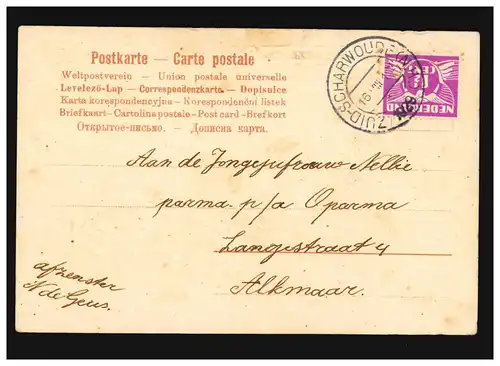 Postkarte – Carte postale
Weltpostverein – Union postale universelle
Levelező-Lap – Correspondenzkarte. – Dopisnice
Karta korespondencyjna – Korespondenční lístek
Briefkaart – Cartolina postale – Post card – Brefkort
Открытое-письмо. – Дописна карта.
ZUID-SCHARWOUDE
16
NEDERLAND
Aan de Jongejufrouw Nellie
parma p/a Oparma
Langestraat 4
Alkmaar.
afzenster
N de Geus.